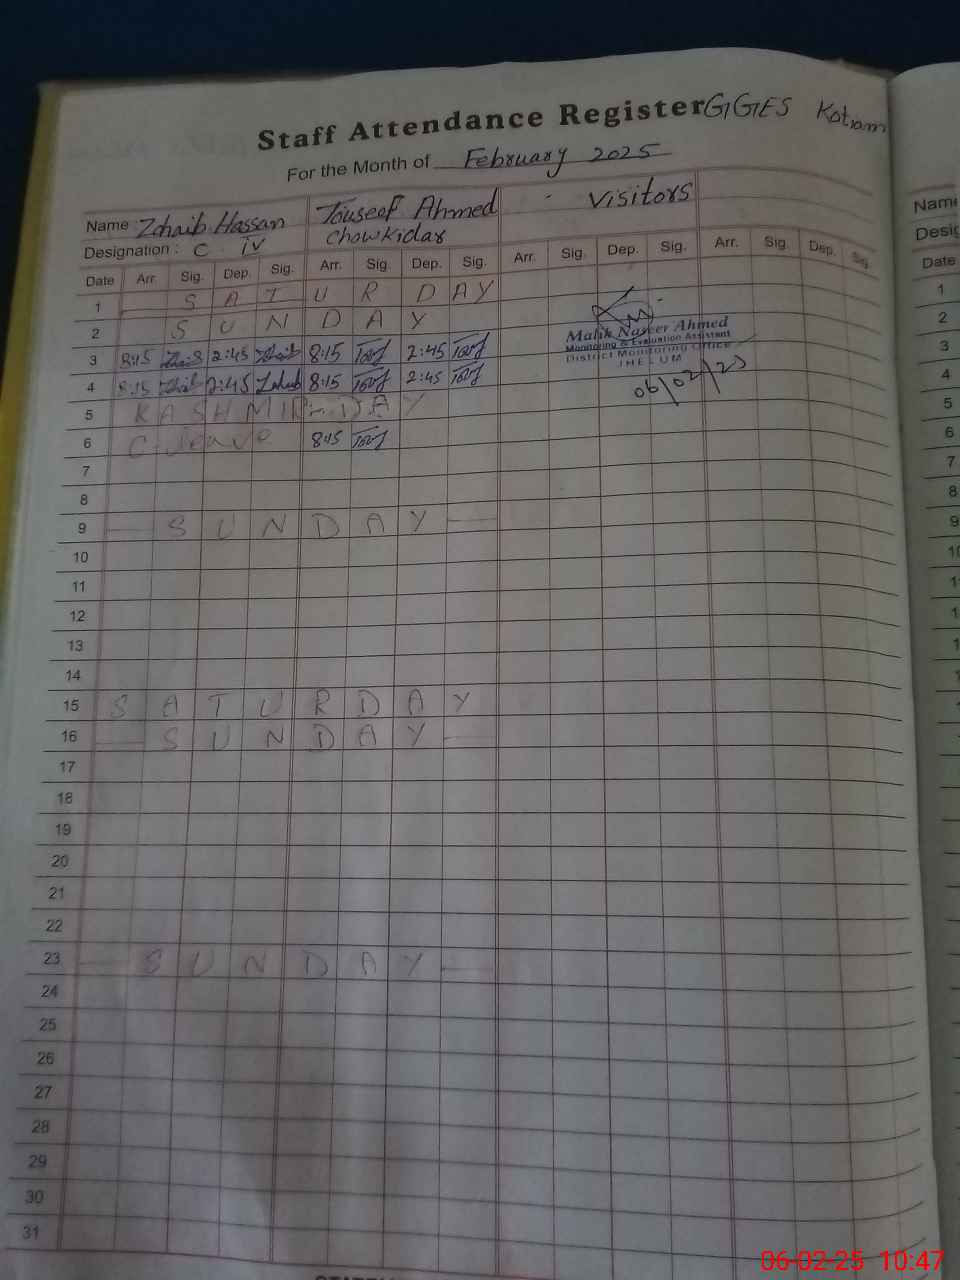 Staff Attendance Register GGES Kotram
For the Month of February 2025
Name : Zohaib Hassan Touseef Ahmed - Visitors
Designation : C iv Chowkidar
Date Arr. Sig. Dep. Sig. Arr. Sig. Dep. Sig. Arr. Sig. Dep. Sig. Arr. Sig. Dep. Sig.
1 S A T U R D A Y
2 S U N D A Y
3 8:15 Zohaib 2:45 Zohaib 8:15 2:45
4 8:15 Zohaib 2:45 Zohaib 8:15 2:45
Malik Naseer Ahmed
Monitoring & Evaluation Assistant
District Monitoring Office
JHELUM
06/02/25
5 KASHMIR DAY
6 C-leave 8:45
7
8
9 S U N D A Y
10
11
12
13
14
15 S A T U R D A Y
16 S U N D A Y
17
18
19
20
21
22
23 S U N D A Y
24
25
26
27
28
29
30
31
Date
1
2
3
4
5
6
7
8
9
06-02-25 10:47